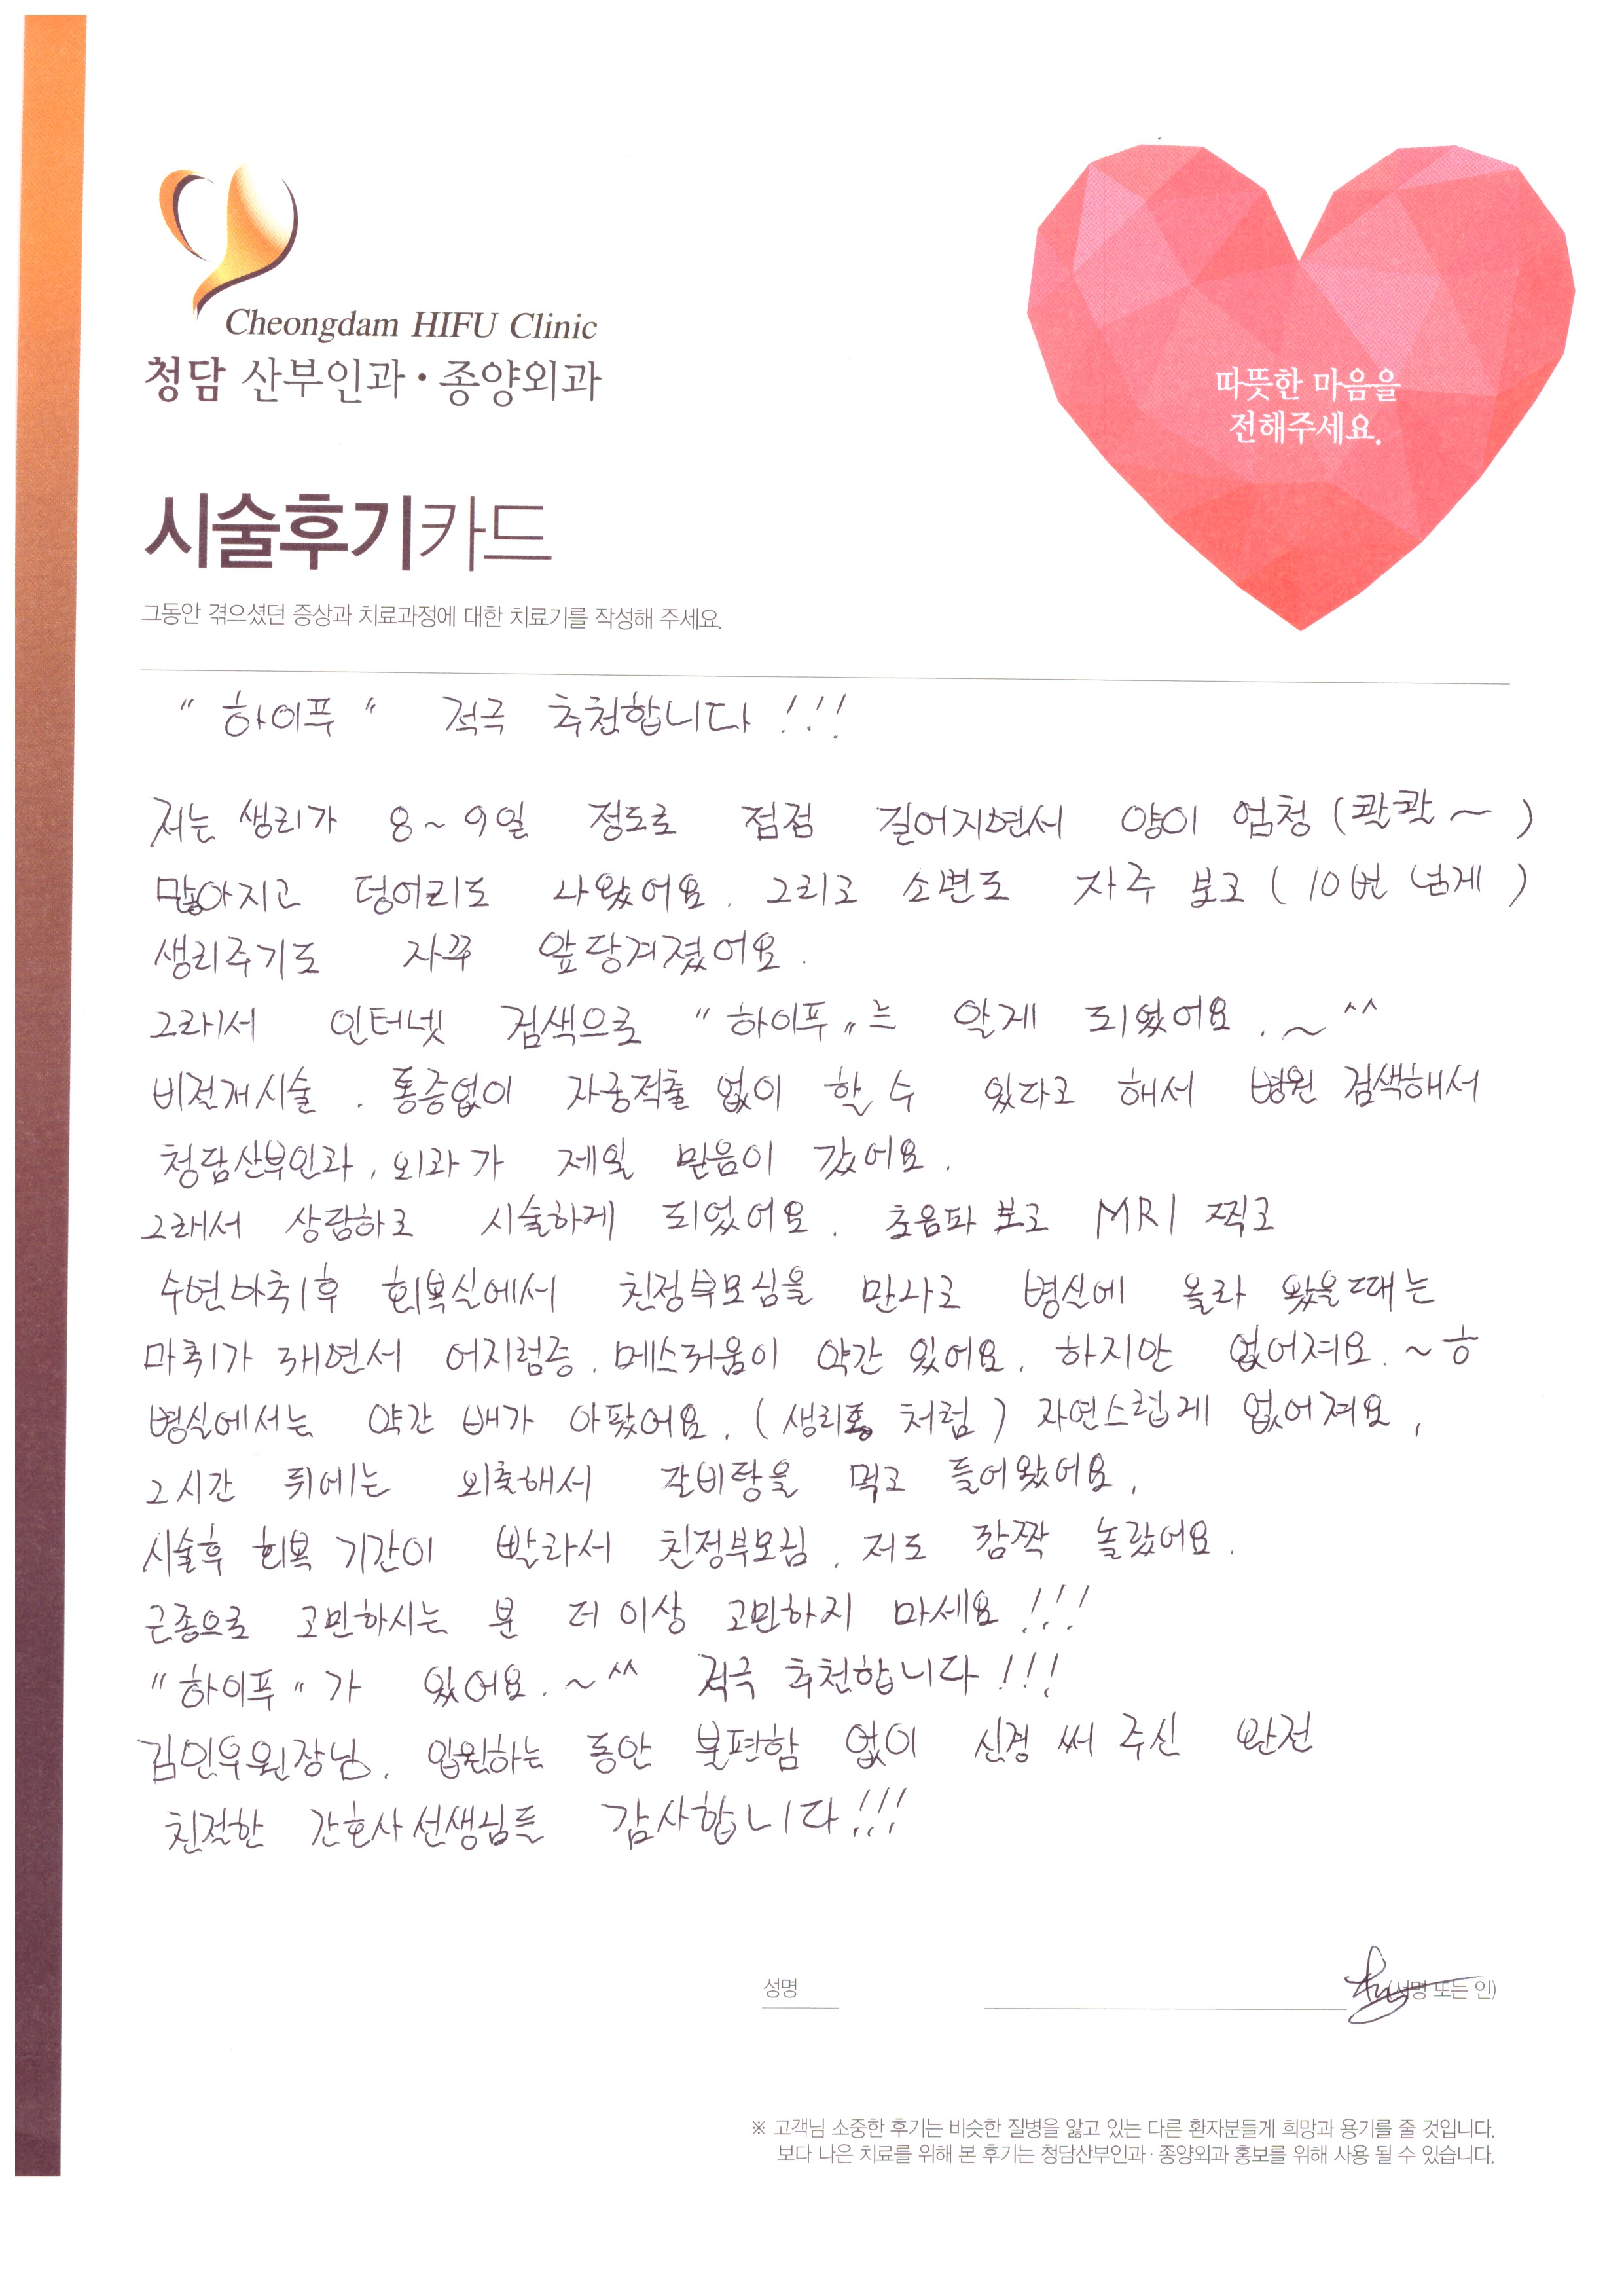 Cheongdam HIFU Clinic
청담 산부인과·종양외과
따뜻한 마음을
전해주세요.
시술후기카드
그동안 겪으셨던 증상과 치료과정에 대한 치료기를 작성해 주세요.
"하이푸" 적극 추천합니다!!!
저는 생리가 8~9일 정도로 점점 길어지면서 양이 엄청 (콸콸~)
많아지고 덩어리도 나왔어요. 그리고 소변도 자주 보고 (10번 넘게)
생리주기도 자꾸 앞당겨졌어요.
그래서 인터넷 검색으로 "하이푸"는 알게 되었어요.~^^
비절개시술. 통증없이 자궁적출 없이 할 수 있다고 해서 병원 검색해서
청담산부인과, 외과가 제일 믿음이 갔어요.
그래서 상담하고 시술하게 되었어요. 초음파 보고 MRI 찍고
수면마취후 회복실에서 친정부모님을 만나고 병실에 올라 왔을때는
마취가 깨면서 어지럼증, 메스꺼움이 약간 있어요. 하지만 없어져요.~ㅎ
병실에서는 약간 배가 아팠어요. (생리통 처럼) 자연스럽게 없어져요.
2시간 뒤에는 외출해서 갈비탕을 먹고 들어왔어요.
시술후 회복 기간이 빨라서 친정부모님, 저도 깜짝 놀랐어요.
근종으로 고민하시는 분 더 이상 고민하지 마세요!!!
"하이푸"가 있어요.~^^ 적극 추천합니다!!!
김민우원장님, 입원하는 동안 불편함 없이 신경 써 주신 완전
친절한 간호사선생님들 감사합니다!!!
성명
(서명 또는 인)
※ 고객님 소중한 후기는 비슷한 질병을 앓고 있는 다른 환자분들께 희망과 용기를 줄 것입니다.
보다 나은 치료를 위해 본 후기는 청담산부인과·종양외과 홍보를 위해 사용 될 수 있습니다.